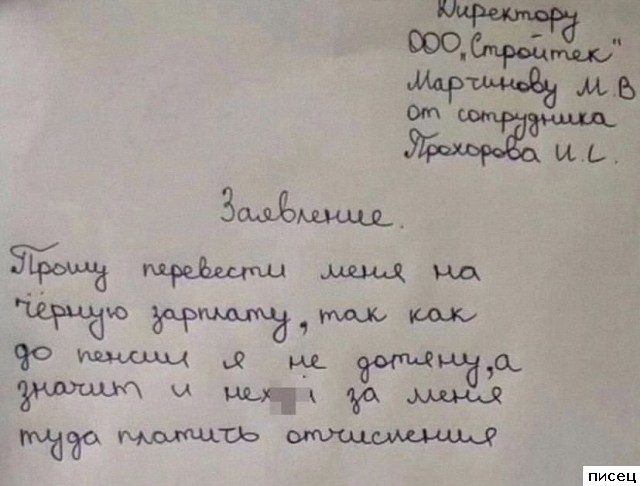 Директору
ООО „Стройтек"
Мартинову М.В
от сотрудника
Прохорова И.С.
Заявление.
Прошу перевести меня на
чёрную зарплату, так как
до пенсии я не дотяну, а
значит и за меня
туда платить отчисления
писец